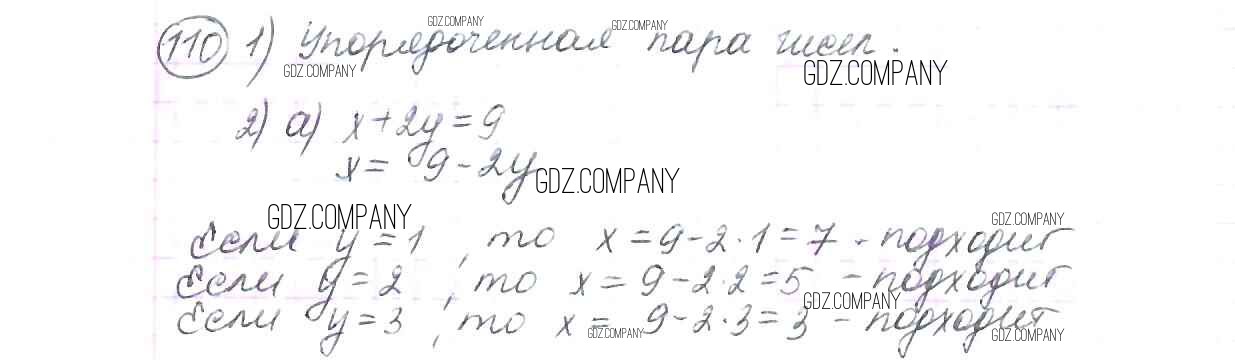 GDZ.COMPANY GDZ.COMPANY
110 1) Упорядоченная пара чисел.
GDZ.COMPANY GDZ.COMPANY
2) а) x+2y=9
x= 9-2y
GDZ.COMPANY
GDZ.COMPANY GDZ.COMPANY
Если y=1, то x=9-2·1=7 - подходит
Если y=2, то x=9-2·2=5 - подходит
GDZ.COMPANY
Если y=3, то x= 9-2·3=3 - подходит
GDZ.COMPANY GDZ.COMPANY